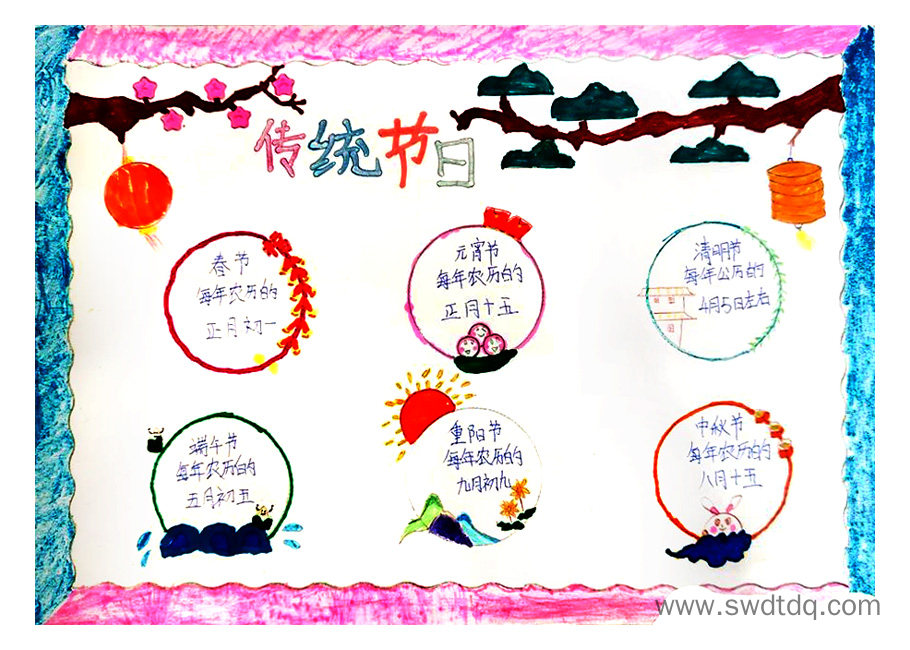 传统节日
春节
每年农历的
正月初一
元宵节
每年农历的
正月十五
清明节
每年公历的
4月5日左右
端午节
每年农历的
五月初五
重阳节
每年农历的
九月初九
中秋节
每年农历的
八月十五
www.swdtdq.com